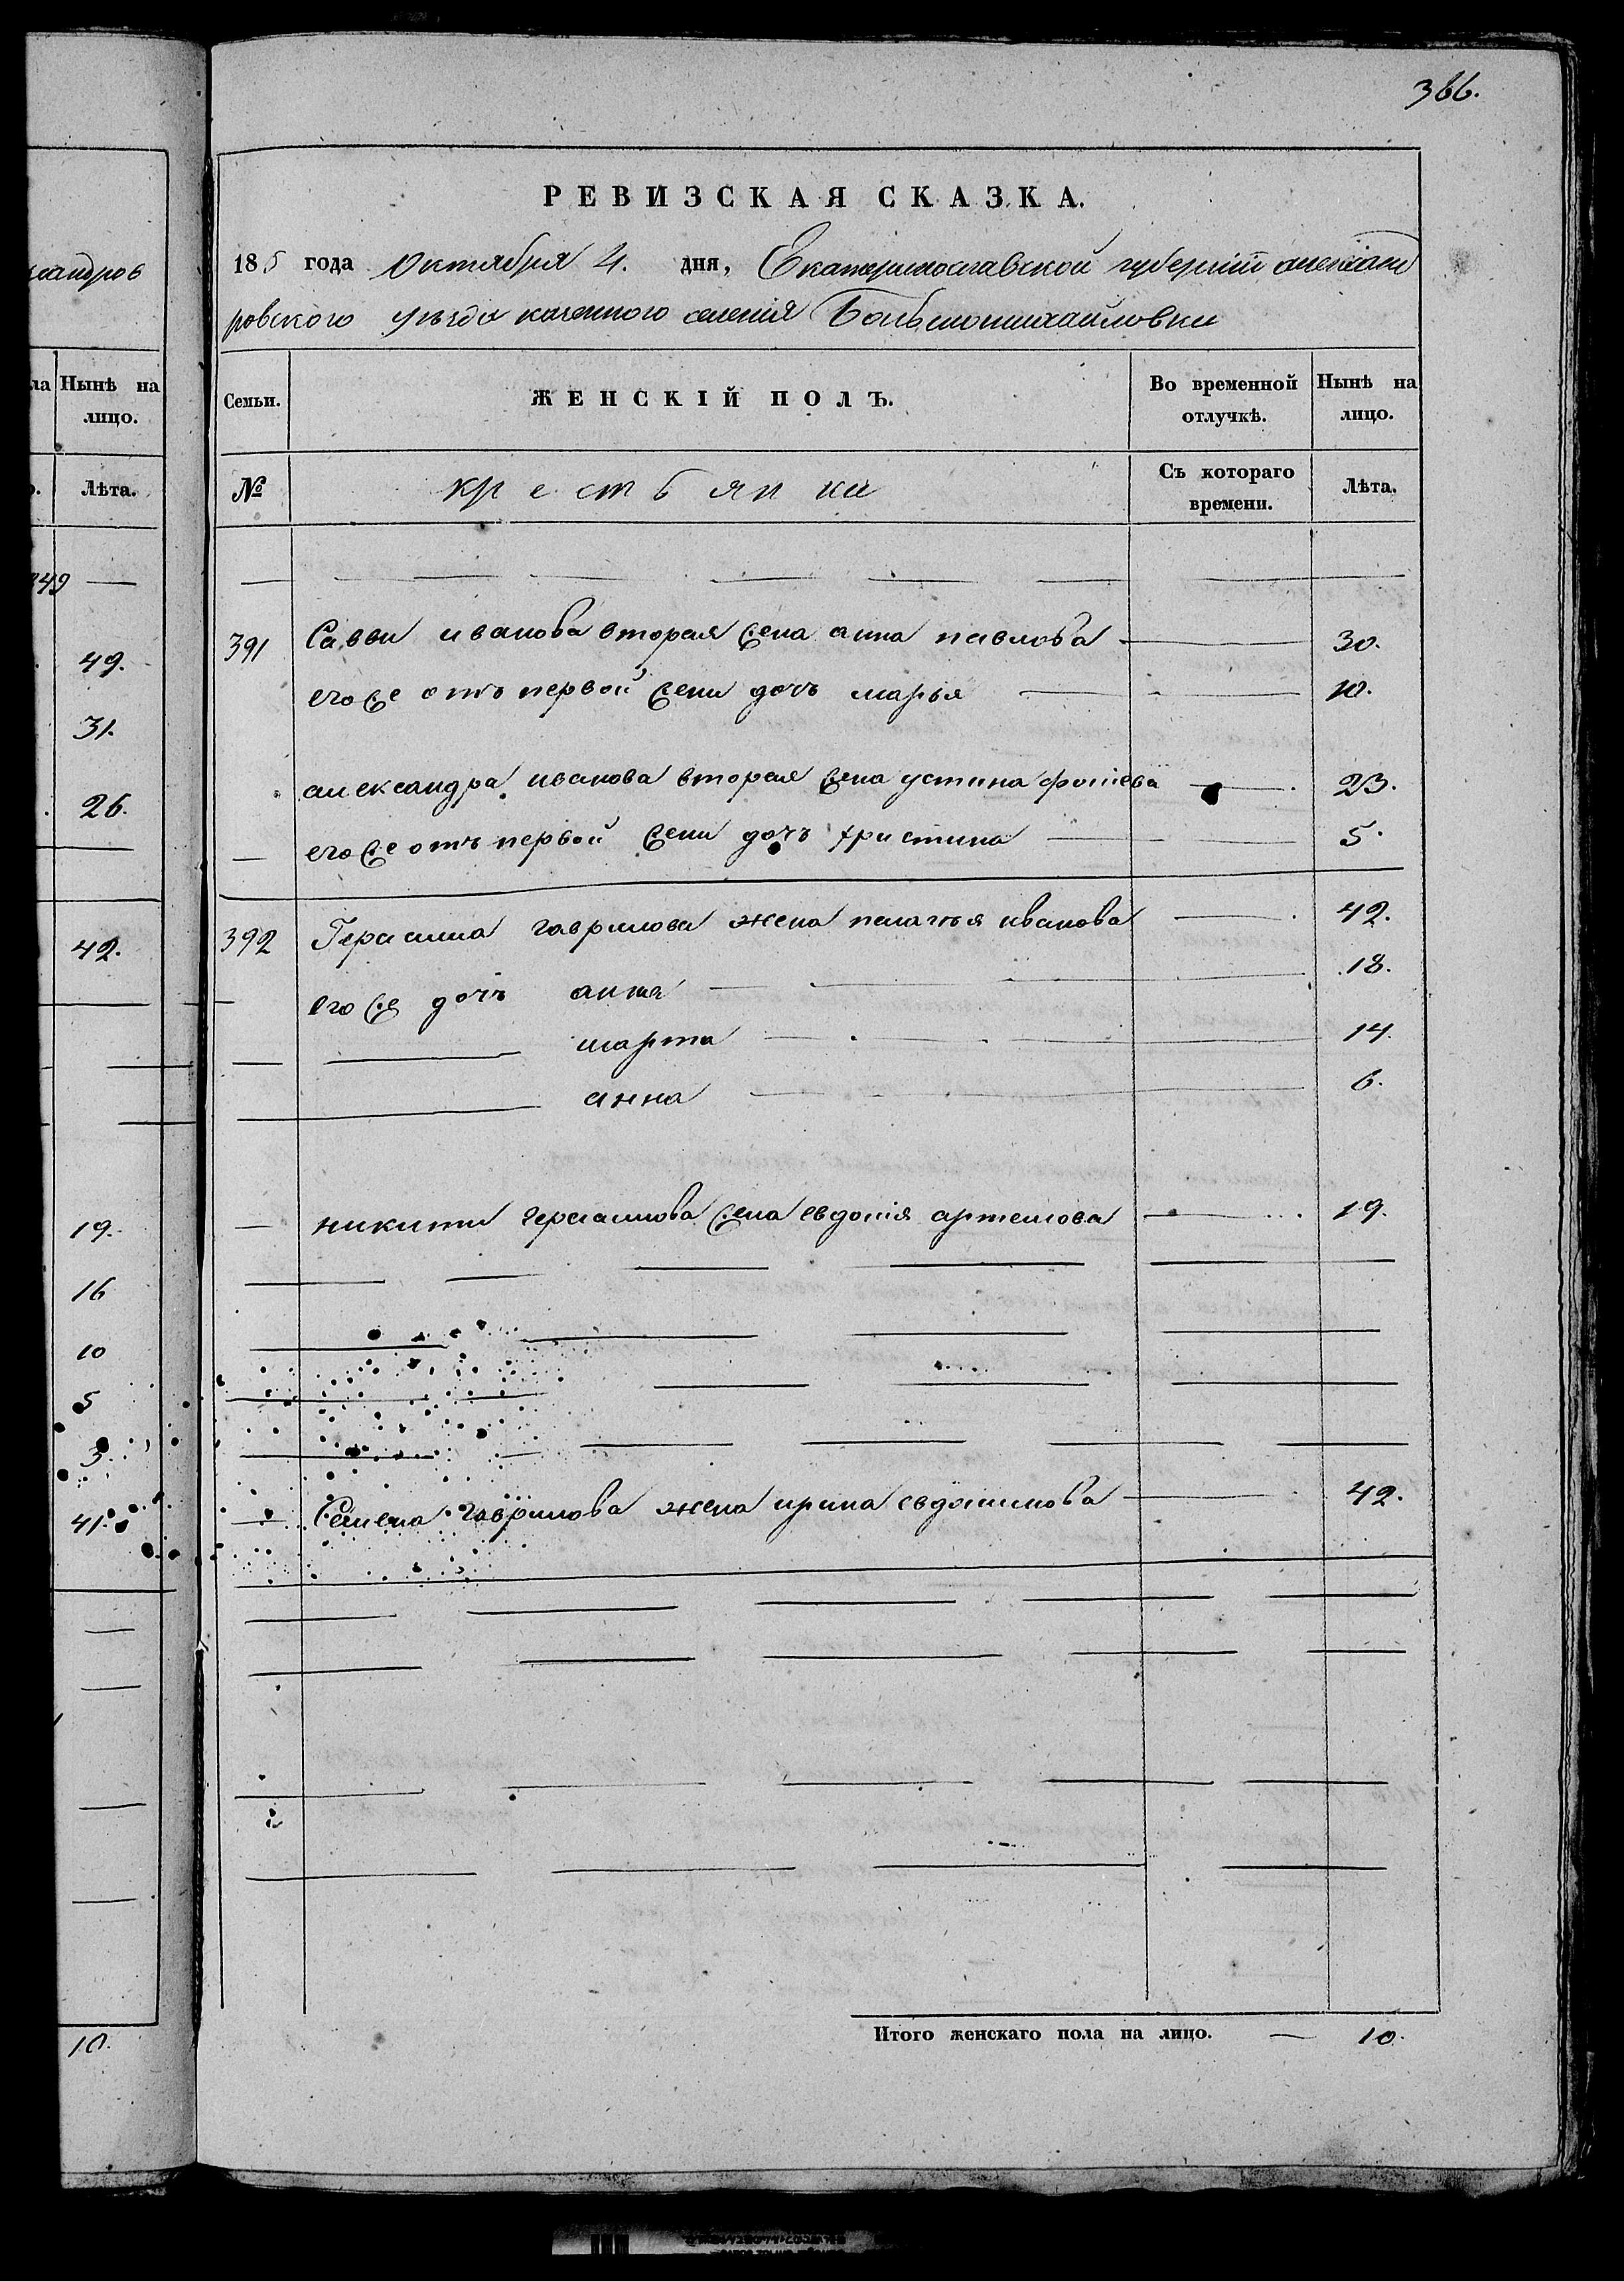 366.
РЕВИЗСКАЯ СКАЗКА.
185 года Октября 4. дня, Екатеринославской губернии александ
ровского уезда казенного селенія Большомихайловки
Семьи.
ЖЕНСКІЙ ПОЛЪ.
Во временной отлучкѣ.
Нынѣ на лицо.
№
крестьянки
Съ котораго времени.
Лѣта.
391 Саввы иванова вторая жена анна павлова 30.
его же отъ первой жены дочь марья 10.
александра иванова вторая жена устина фотіева 23.
его же отъ первой жены дочъ христина 5.
392 Герасима гаврилова жена пелагія иванова 42.
его же дочь анна 18.
марта 14.
анна 6.
никиты герасимова жена евдокія артемова 19.
Семена гаврилова жена ирина евдокимова 42.
Итого женскаго пола на лицо. — 10.
ксандров
ла
Нынѣ на
лицо.
о.
Лѣта.
849
49.
31.
26.
42.
19.
16
10
5
3.
41.
10.